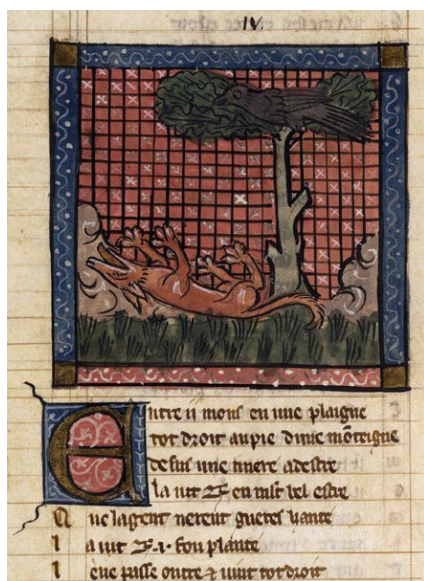 IV
Entre ii mons en une plaigne
tot droit au pie dune mōteigne
desus une riuere adestre
la uit R en mlt bel estre
Q ue lagent nerent gueres hante
l a uit R .i. fou plante
l eue passe outre ⁊ uint tot droit